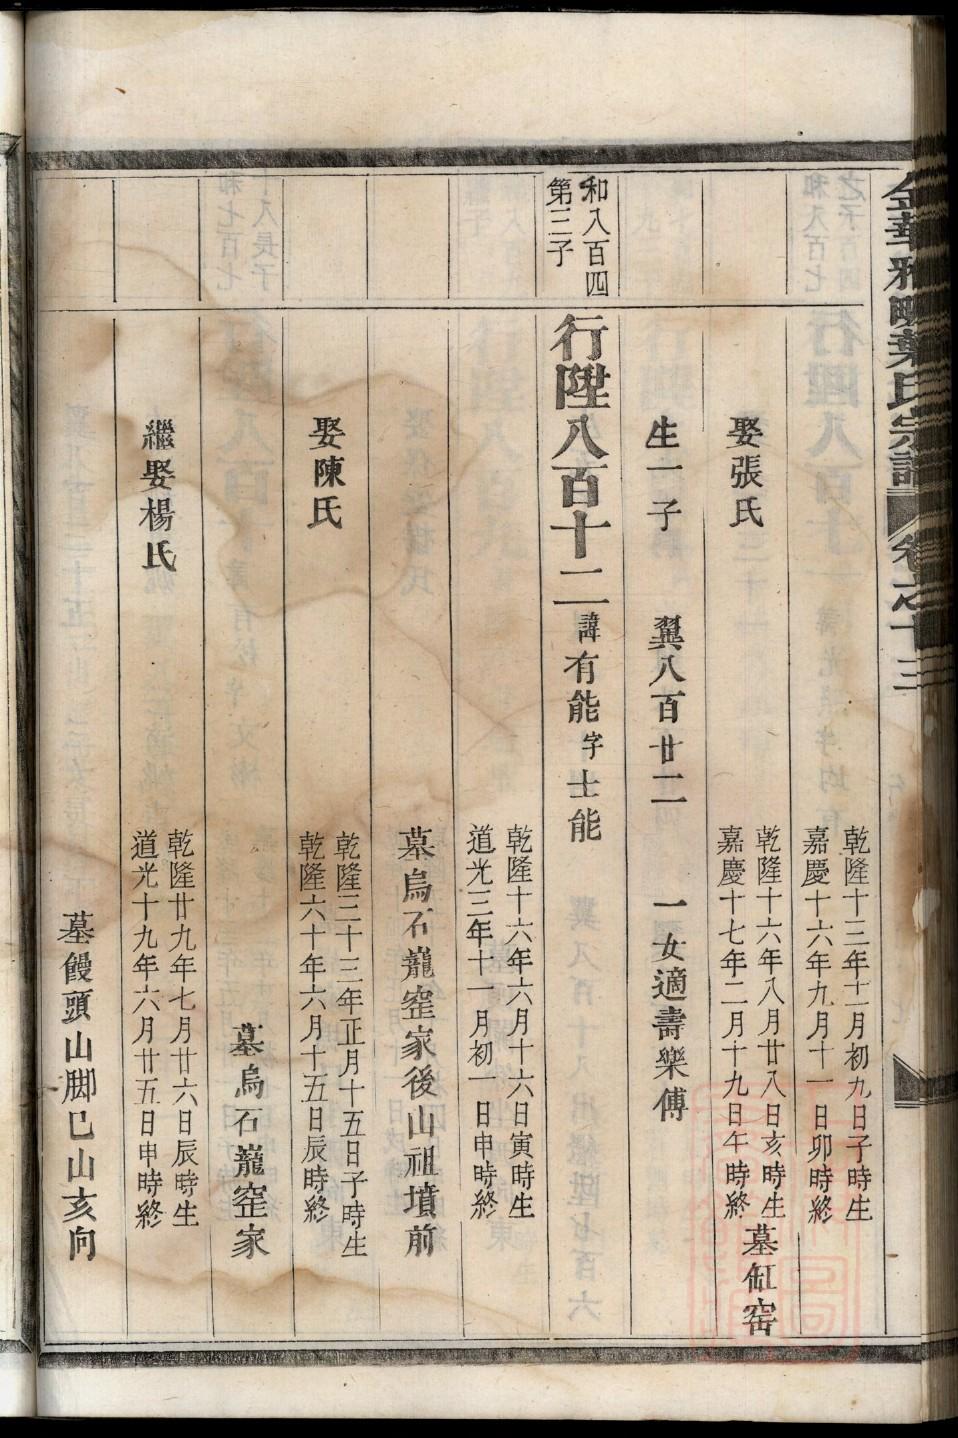 金華雅畈葉氏宗譜 卷之十三
乾隆十三年十一月初九日子時生
嘉慶十六年九月十一日卯時終
娶張氏
乾隆十六年八月廿八日亥時生
嘉慶十七年二月十九日午時終
墓缸窑
生一子 翼八百廿二 一女適壽樂傅
和八百四
第三子
行陞八百十二 諱有能字士能
乾隆十六年六月十六日寅時生
道光三年十一月初一日申時終
墓烏石蘢窐家後山祖墳前
娶陳氏
乾隆三十三年正月十五日子時生
乾隆六十年六月十五日辰時終
墓烏石蘢窐家
繼娶楊氏
乾隆廿九年七月廿六日辰時生
道光十九年六月廿五日申時終
墓饅頭山脚巳山亥向